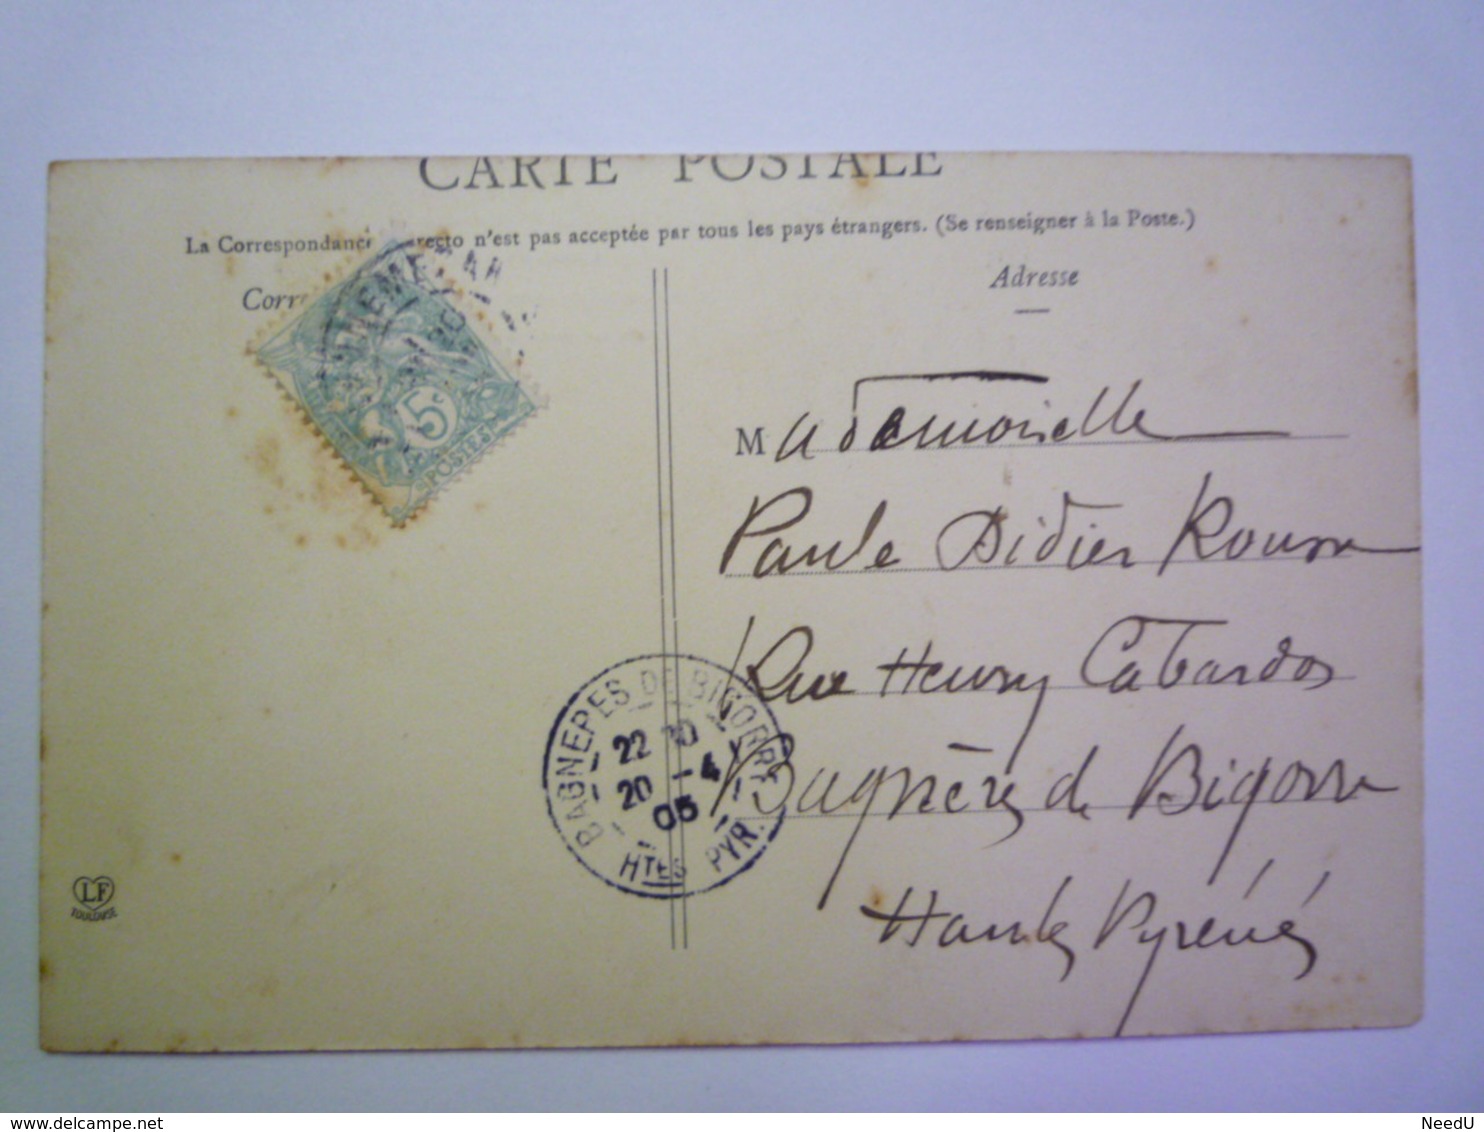 CARTE POSTALE
La Correspondance recto n'est pas acceptée par tous les pays étrangers. (Se renseigner à la Poste.)
Corre
Adresse
Mademoiselle
Paule Didier Rousse
Rue Henry Cabardos
Bagnères de Bigorre
Hautes Pyrénées
5c
POSTES
BAGNERES DE BIGORRE
22
20 -4
05
HTES PYR.
LF
TOULOUSE
www.delcampe.net
NeedU